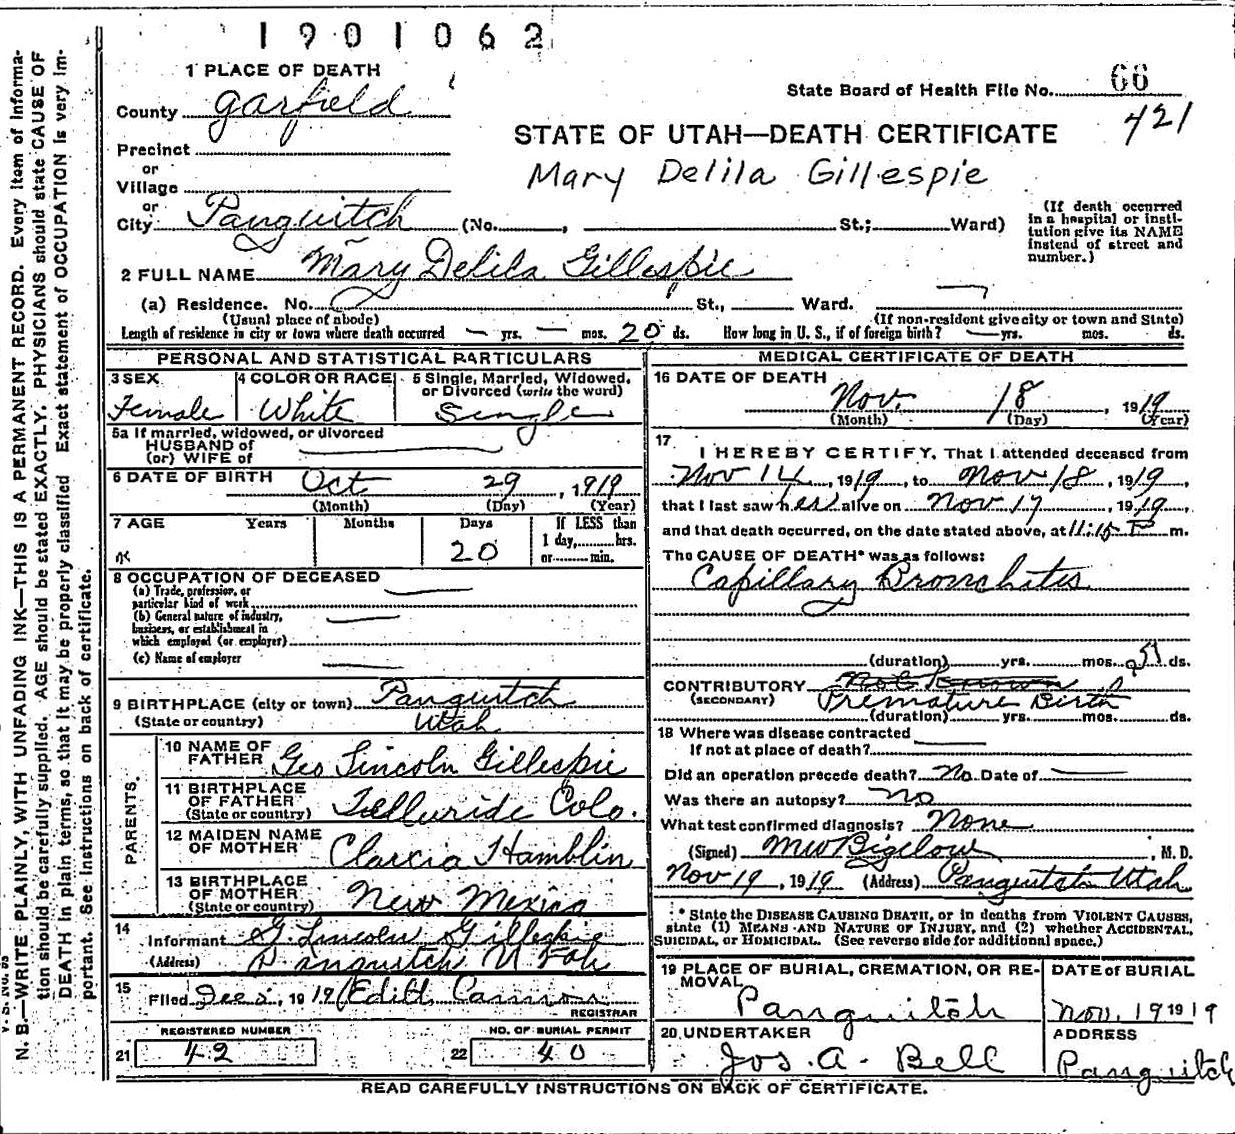 1901062
1 PLACE OF DEATH
State Board of Health File No. 66
County Garfield
421
STATE OF UTAH—DEATH CERTIFICATE
Precinct
or
Mary Delila Gillespie
Village
or
City Panguitch (No. , St.; Ward)
(If death occurred in a hospital or insti-
tution give its NAME instead of street and number.)
2 FULL NAME Mary Delila Gillespie
(a) Residence. No. St., Ward.
(Usual place of abode) (If non-resident give city or town and State)
Length of residence in city or town where death occurred — yrs. — mos. 20 ds. How long in U. S., if of foreign birth? — yrs. mos. ds.
PERSONAL AND STATISTICAL PARTICULARS
3 SEX Female
4 COLOR OR RACE White
5 Single, Married, Widowed, or Divorced (write the word) Single
5a If married, widowed, or divorced
HUSBAND of
(or) WIFE of
6 DATE OF BIRTH Oct 29, 1919
(Month) (Day) (Year)
7 AGE Years Months Days If LESS than
20 1 day, hrs.
or min.
8 OCCUPATION OF DECEASED
(a) Trade, profession, or
particular kind of work
(b) General nature of industry,
business, or establishment in
which employed (or employer)
(c) Name of employer
9 BIRTHPLACE (city or town) Panguitch
(State or country) Utah
PARENTS.
10 NAME OF FATHER Geo Lincoln Gillespie
11 BIRTHPLACE OF FATHER Telluride Colo.
(State or country)
12 MAIDEN NAME OF MOTHER Hamblin
13 BIRTHPLACE OF MOTHER New Mexico
(State or country)
14 Informant G. Lincoln Gillespie
(Address) Panguitch Utah
15 Filed 1919 Edith
REGISTRAR
REGISTERED NUMBER NO. OF BURIAL PERMIT
21 42 22 40
MEDICAL CERTIFICATE OF DEATH
16 DATE OF DEATH
Nov. 18, 1919
(Month) (Day) (Year)
17
I HEREBY CERTIFY, That I attended deceased from
Nov 14, 1919, to Nov 18, 1919,
that I last saw her alive on Nov 17, 1919,
and that death occurred, on the date stated above, at 11:15 P m.
The CAUSE OF DEATH* was as follows:
Capillary Bronchitis
(duration) yrs. mos. ds.
CONTRIBUTORY Not Known
(SECONDARY) Premature Birth
(duration) yrs. mos. ds.
18 Where was disease contracted
If not at place of death?
Did an operation precede death? No Date of —
Was there an autopsy? no
What test confirmed diagnosis? None
(Signed) M W Bigelow, M. D.
Nov 19, 1919 (Address) Panguitch Utah
* State the DISEASE CAUSING DEATH, or in deaths from VIOLENT CAUSES,
state (1) MEANS AND NATURE OF INJURY, and (2) whether ACCIDENTAL,
SUICIDAL, or HOMICIDAL. (See reverse side for additional space.)
19 PLACE OF BURIAL, CREMATION, OR RE-
MOVAL
Panguitch
DATE of BURIAL
Nov. 19 1919
20 UNDERTAKER
Jos. A. Bell
ADDRESS
Panguitch
READ CAREFULLY INSTRUCTIONS ON BACK OF CERTIFICATE.
N. B.—WRITE PLAINLY, WITH UNFADING INK—THIS IS A PERMANENT RECORD. Every item of informa-
tion should be carefully supplied. AGE should be stated EXACTLY. PHYSICIANS should state CAUSE OF
DEATH in plain terms, so that it may be properly classified Exact statement of OCCUPATION is very im-
portant. See instructions on back of certificate.